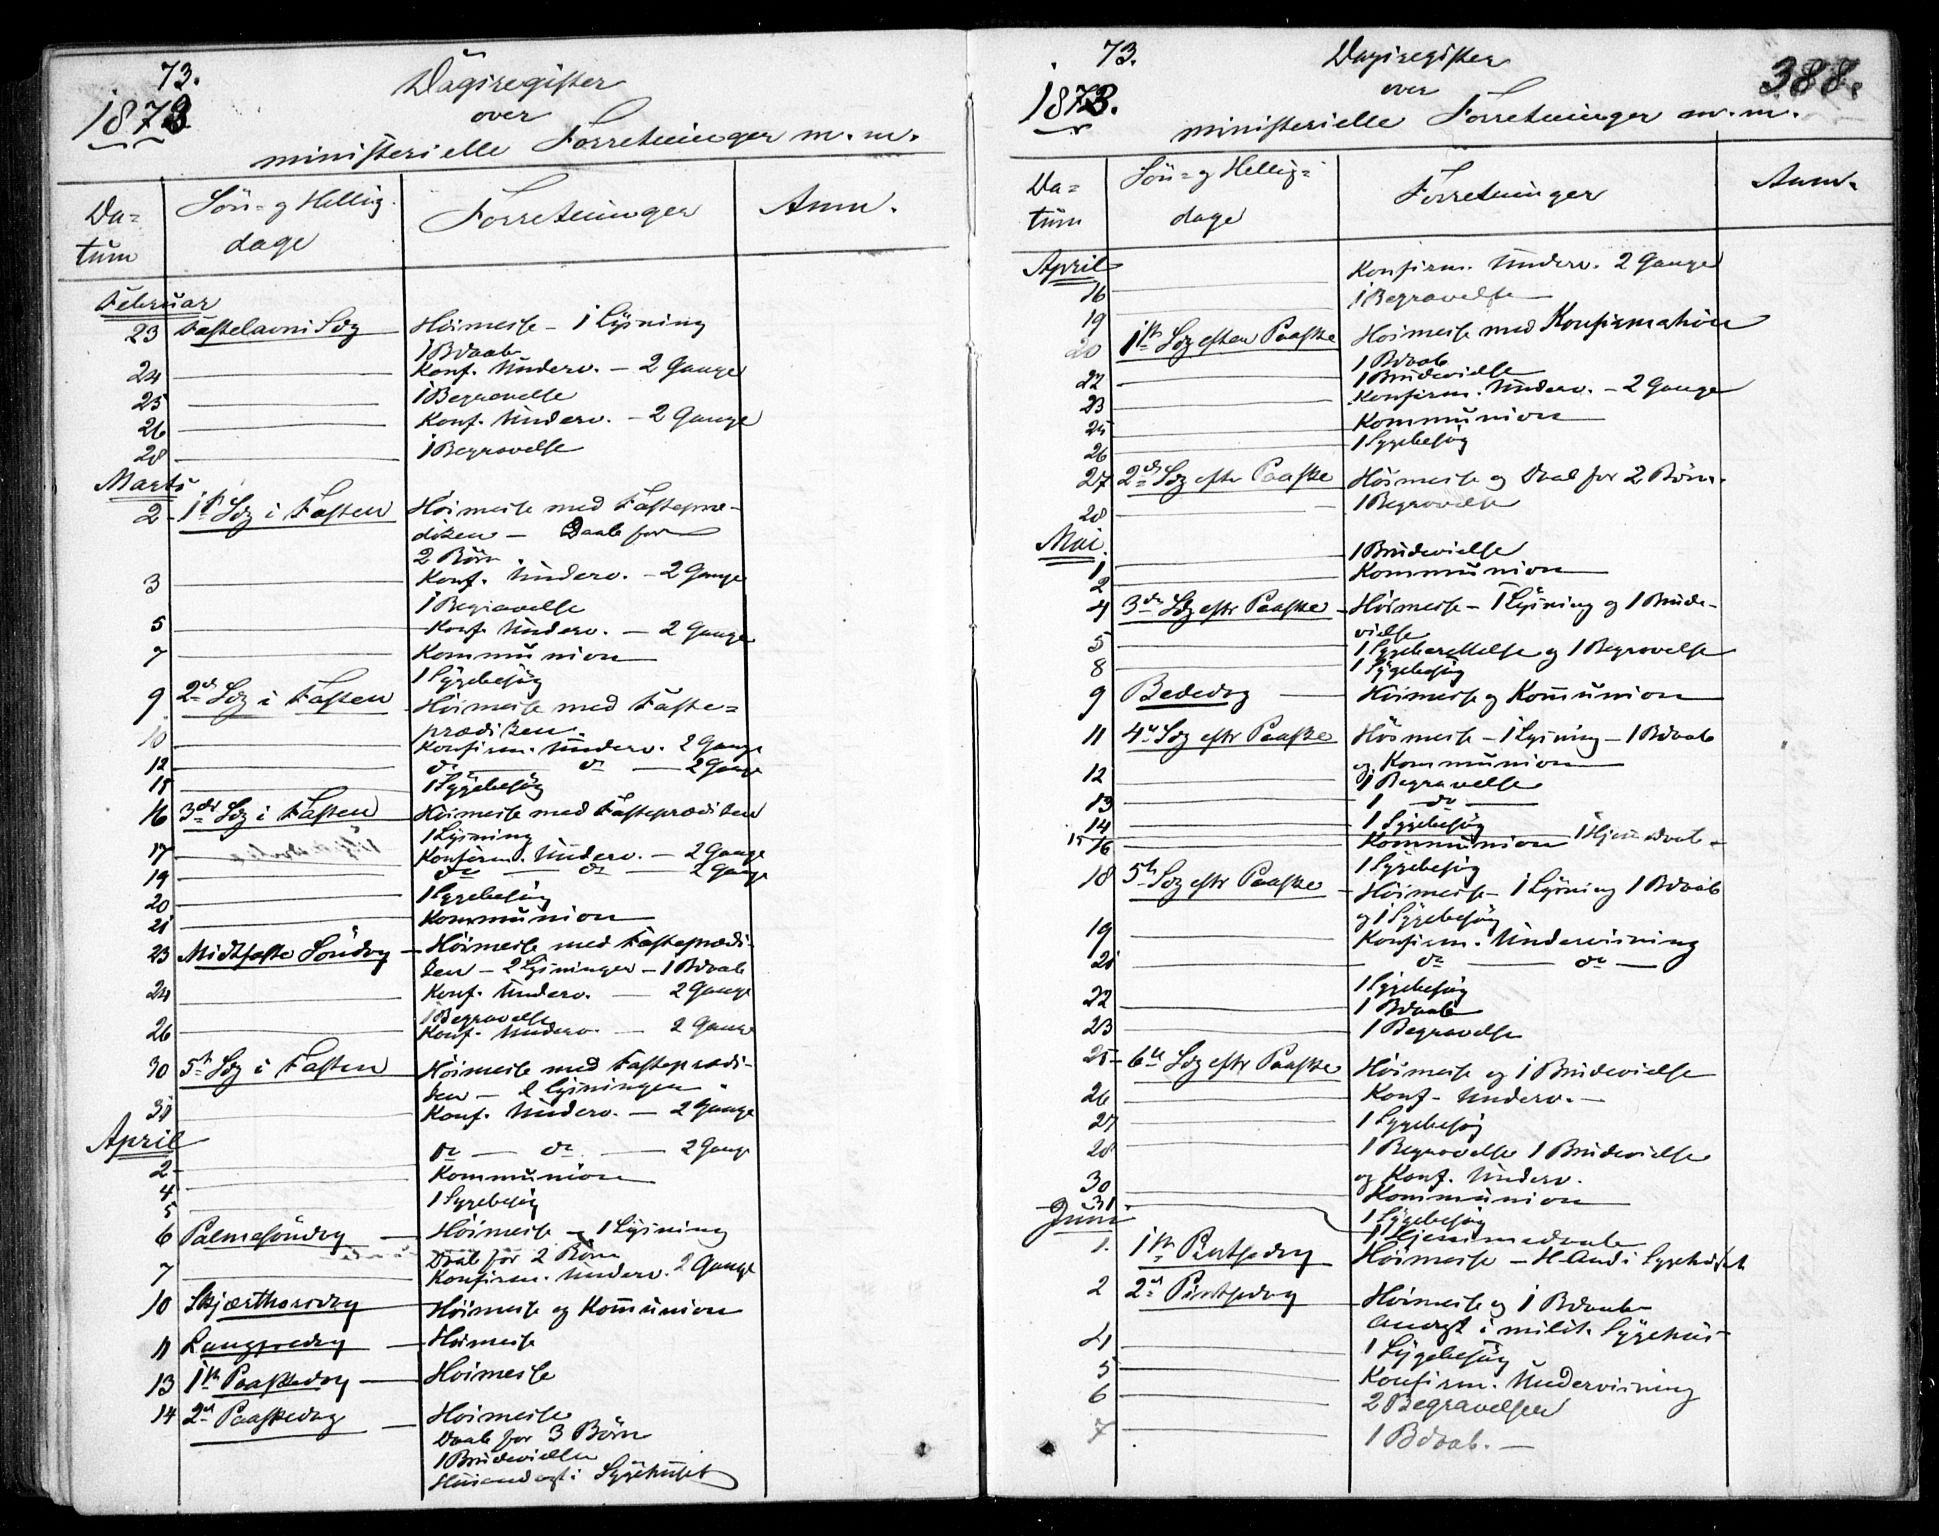 73.
1873
Dagsregister
over
ministerielle Forretninger m. m.
Da-
tum
Sön- og Hellig-
dage
Forretninger
Anm.
Februar
23 Fastelavns Sdg Höimesse - 1 Lysning
1 Bdaab
24 Konf. Underv. - 2 Gange
25 1 Begravelse
26 Konf. Underv. - 2 Gange
28 1 Begravelse
Marts
2 1ste Sdg i Fasten Höimesse med Fastepræ-
diken - Daab for
2 Börn
3 Konf. Underv. - 2 Gange
1 Begravelse
5 Konf. Underv. - 2 Gange
7 Kommunion
1 Sygebesög
9 2den Sdg i Fasten Höimesse med Faste-
prædiken.
10 Konfirm. Underv. 2 Gange
12 do do 2 Gange
15 1 Sygebesög
16 3die Sdg i Fasten Höimesse med Fasteprædiken
1 Lysning
17 Konfirm. Underv. - 2 Gange
19 do do 2 Gange
20 1 Sygebesög
21 Kommunion
23 Midtfaste Söndag - Höimesse med Fasteprædi-
ken - 2 Lysninger - 1 Bdaab
24 Konf. Underv. - 2 Gange
1 Begravelse
26 Konf. Underv. - 2 Gange
30 5te Sdg i Fasten Höimesse med Fasteprædi-
ken - 2 Lysninger
31 Konf. Underv. - 2 Gange
April
2 do - do - 2 Gange
4 Kommunion
5 1 Sygebesög
6 Palmesöndag - Höimesse - 1 Lysning
Daab for 2 Börn
7 Konfirm. Underv. 2 Gange
10 Skjærthorsdag Höimesse og Kommunion
11 Langfredag - Höimesse
13 1ste Paaskedag - Höimesse
14 2den Paaskedag - Höimesse
Daab for 3 Börn
1 Brudevielse
Husandagt i Sygehuset
73.
1873.
Dagsregister
over
ministerielle Forretninger m. m.
388.
Da-
tum
Sön- og Hellig-
dage
Forretninger
Anm.
April
16 Konfirm. Underv. 2 Gange
19 1 Begravelse
20 1ste Sdg efter Paaske Höimesse med Konfirmation
1 Bdaab
22 1 Brudevielse
23 Konfirm. Underv. - 2 Gange
25 Kommunion
26 1 Sygebesög
27 2den Sdg efter Paaske Höimesse og Daab for 2 Börn.
28 1 Begravelse
Mai.
1 1 Brudevielse
2 Kommunion
4 3die Sdg eftr Paaske - Höimesse - 1 Lysning og 1 Brude-
vielse
5 1 Sygeberettelse og 1 Begravelse
8 1 Sygebesög
9 Bededag Höimesse og Kommunion
11 4de Sdg eftr Paaske Höimesse - 1 Lysning - 1 Bdaab
og Kommunion
12 1 Begravelse
13 1 do
14 1 Sygebesög
15 16 Kommunion 1 Hjemmedaab
1 Sygebesög
18 5te Sdg eftr Paaske - Höimesse - 1 Lysning 1 Bdaab
og 1 Sygebesög
19 Konfirm. Undervisning
21 do do
22 1 Sygebesög
1 Bdaab
23 1 Begravelse
25 - 6te Sdg eftr Paaske Höimesse og 1 Brudevielse
26 Konf. Underv.
27 1 Sygebesög
28 1 Begravelse 1 Brudevielse
og Konf. Underv.
30 Kommunion
31 1 Sygebesög
Juni 1 Hjemmedaab
1. 1ste Pintsedag Höimesse - H.And. i Sygehuset
2 2den Pintsedag Höimesse og 1 Bdaab
Andagt i milit. Sygehus
4 1 Sygebesög
5 Konfirm. Undervisning
6 2 Begravelser
7 1 Bdaab.